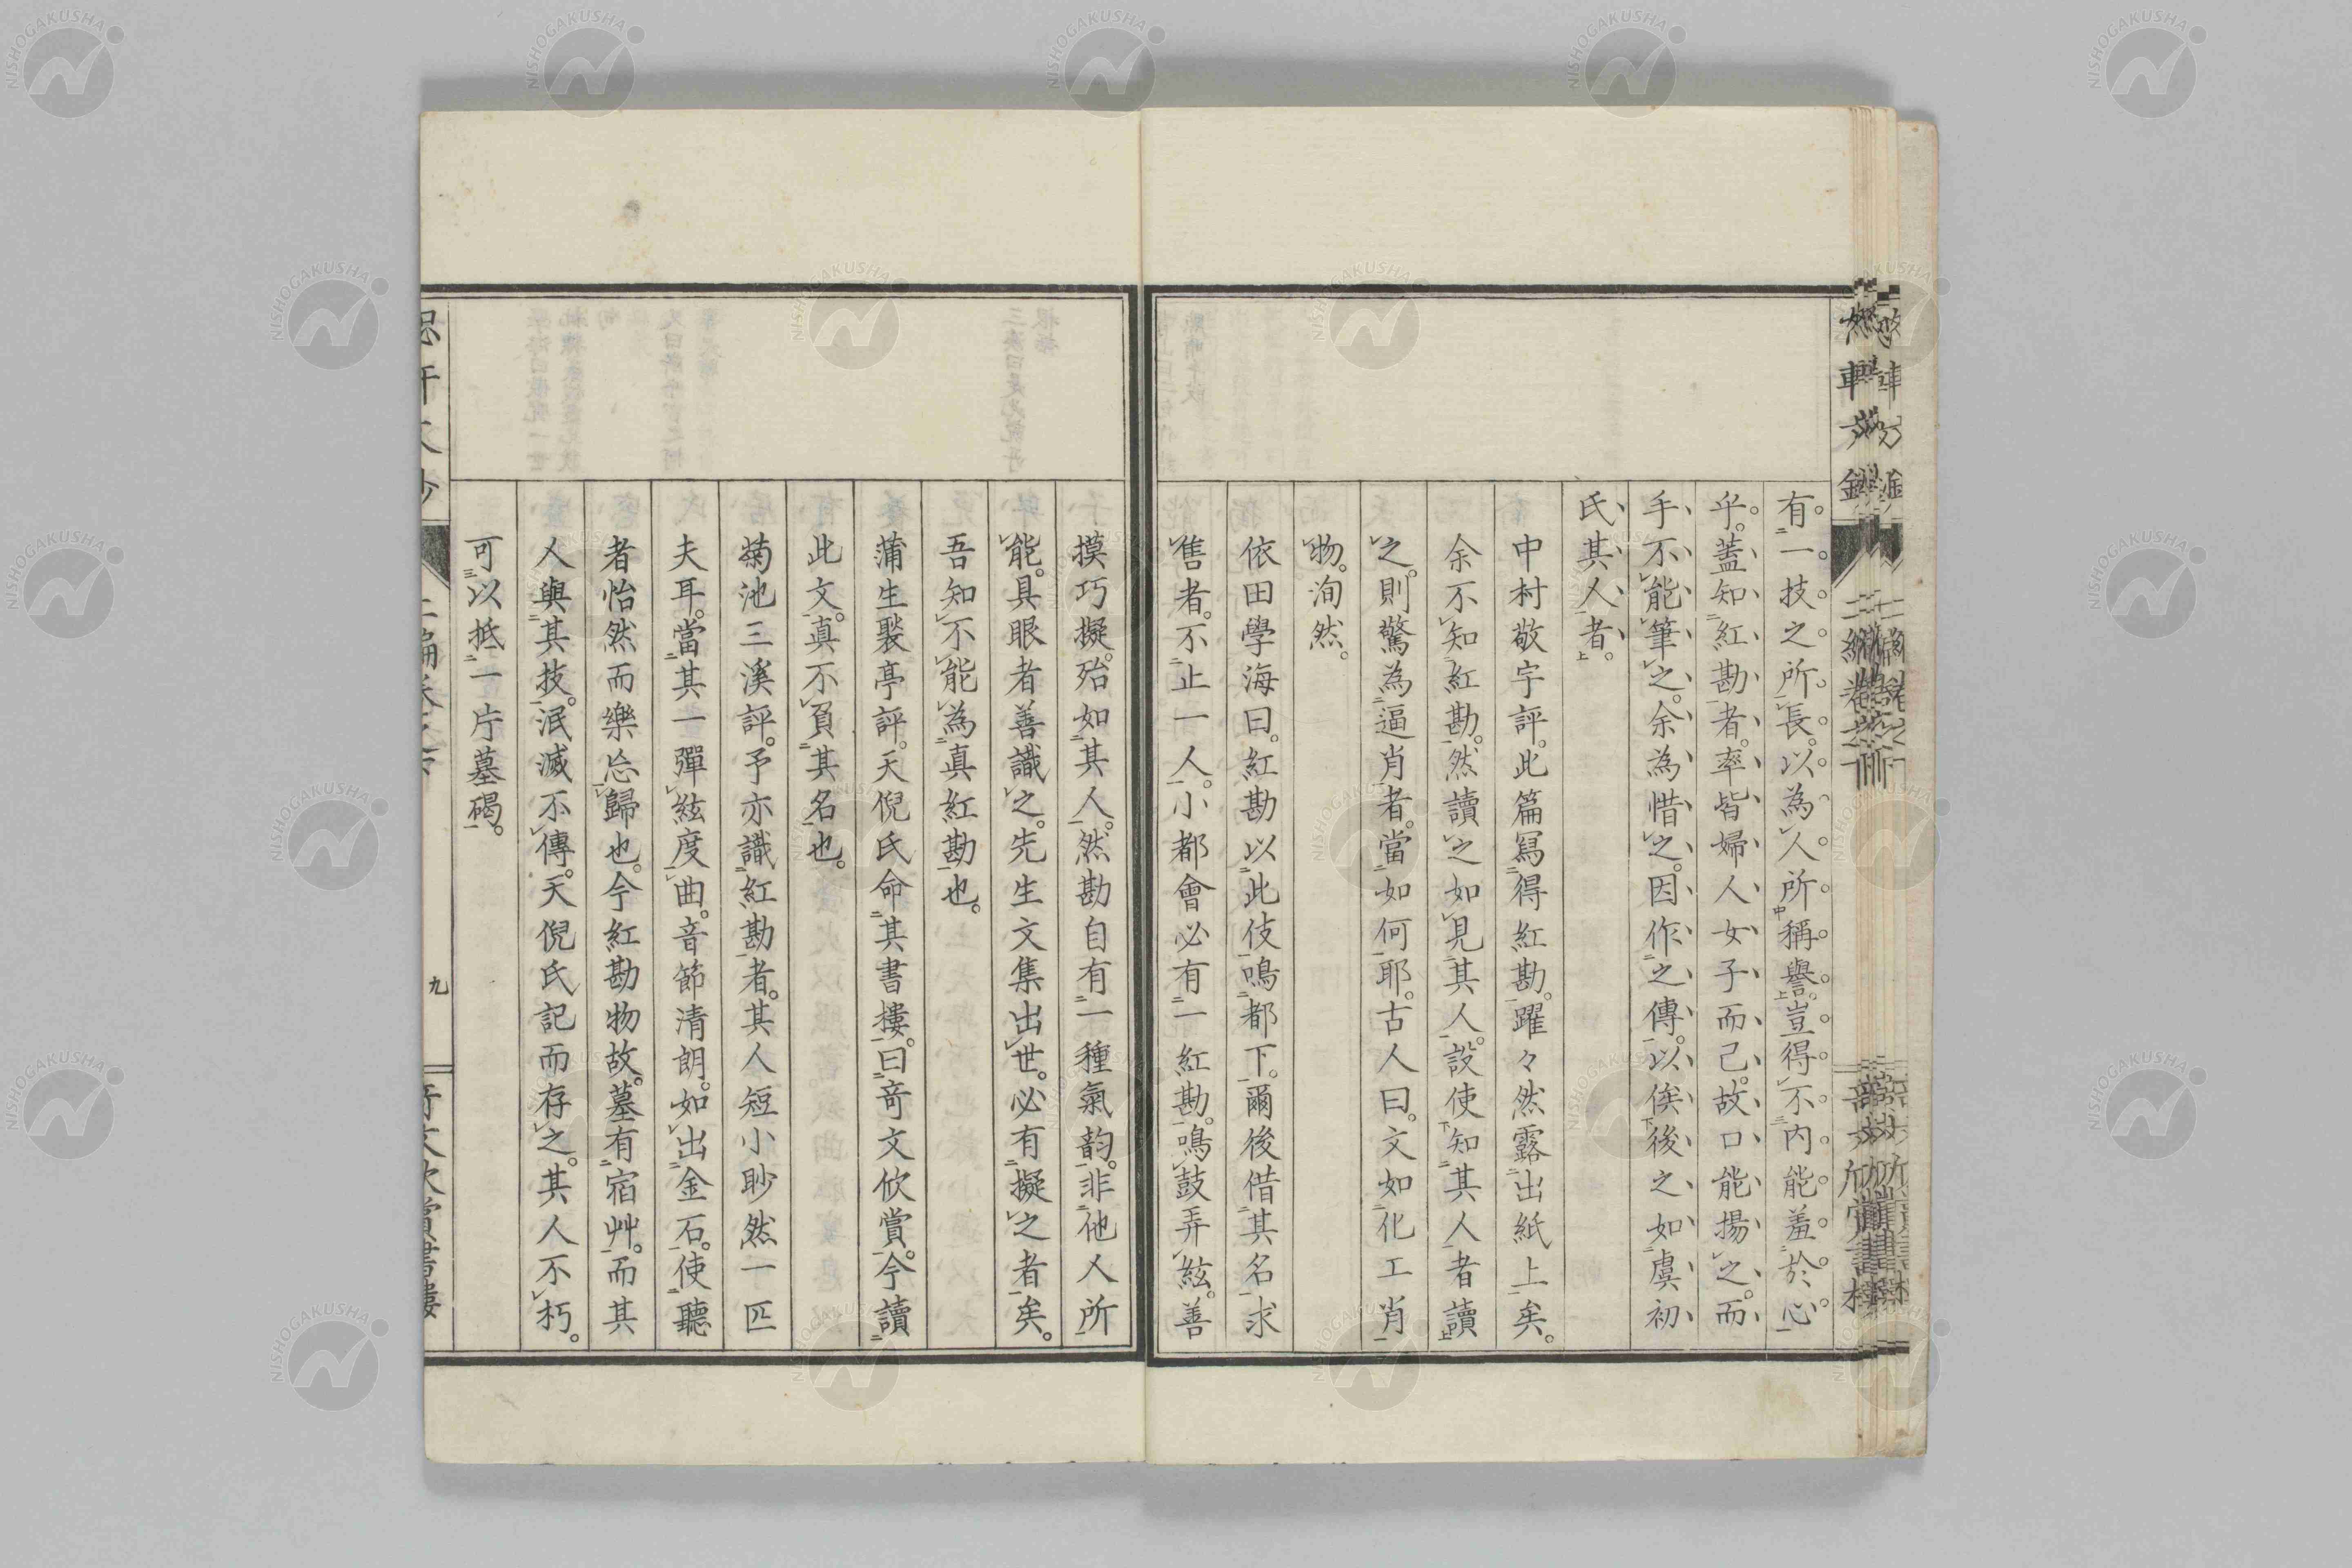 有一技之所長。以為人所稱譽。豈得不內能羞於心
乎。蓋知紅勘者。率皆婦人女子而已。故口能揚之。而
手不能筆之。余為惜之。因作之傳。以俟後之如虞初
氏其人者。
中村敬宇評。此篇寫得紅勘。躍々然露出紙上矣。
余不知紅勘。然讀之如見其人。設使知其人者讀
之。則驚為逼肖者。當如何耶。古人曰。文如化工肖
物。洵然。
依田學海曰。紅勘以此伎鳴都下。爾後借其名求
售者。不止一人。小都會必有一紅勘。鳴鼓弄絃。善
摸巧擬。殆如其人。然勘自有一種氣韵。非他人所
能。具眼者善識之。先生文集出世。必有擬之者矣。
吾知不能為真紅勘也。
蒲生褧亭評。天倪氏命其書摟。曰竒文佽賞。今讀
此文。真不負其名也。
菊池三溪評。予亦識紅勘者。其人短小眇然一匹
夫耳。當其一彈絃度曲。音節清朗。如出金石。使聽
者怡然而樂忘歸也。今紅勘物故。墓有宿艸。而其
人與其技。泯滅不傳。天倪氏記而存之。其人不朽。
可以抵一片墓碣。
九
NISHOGAKUSHA